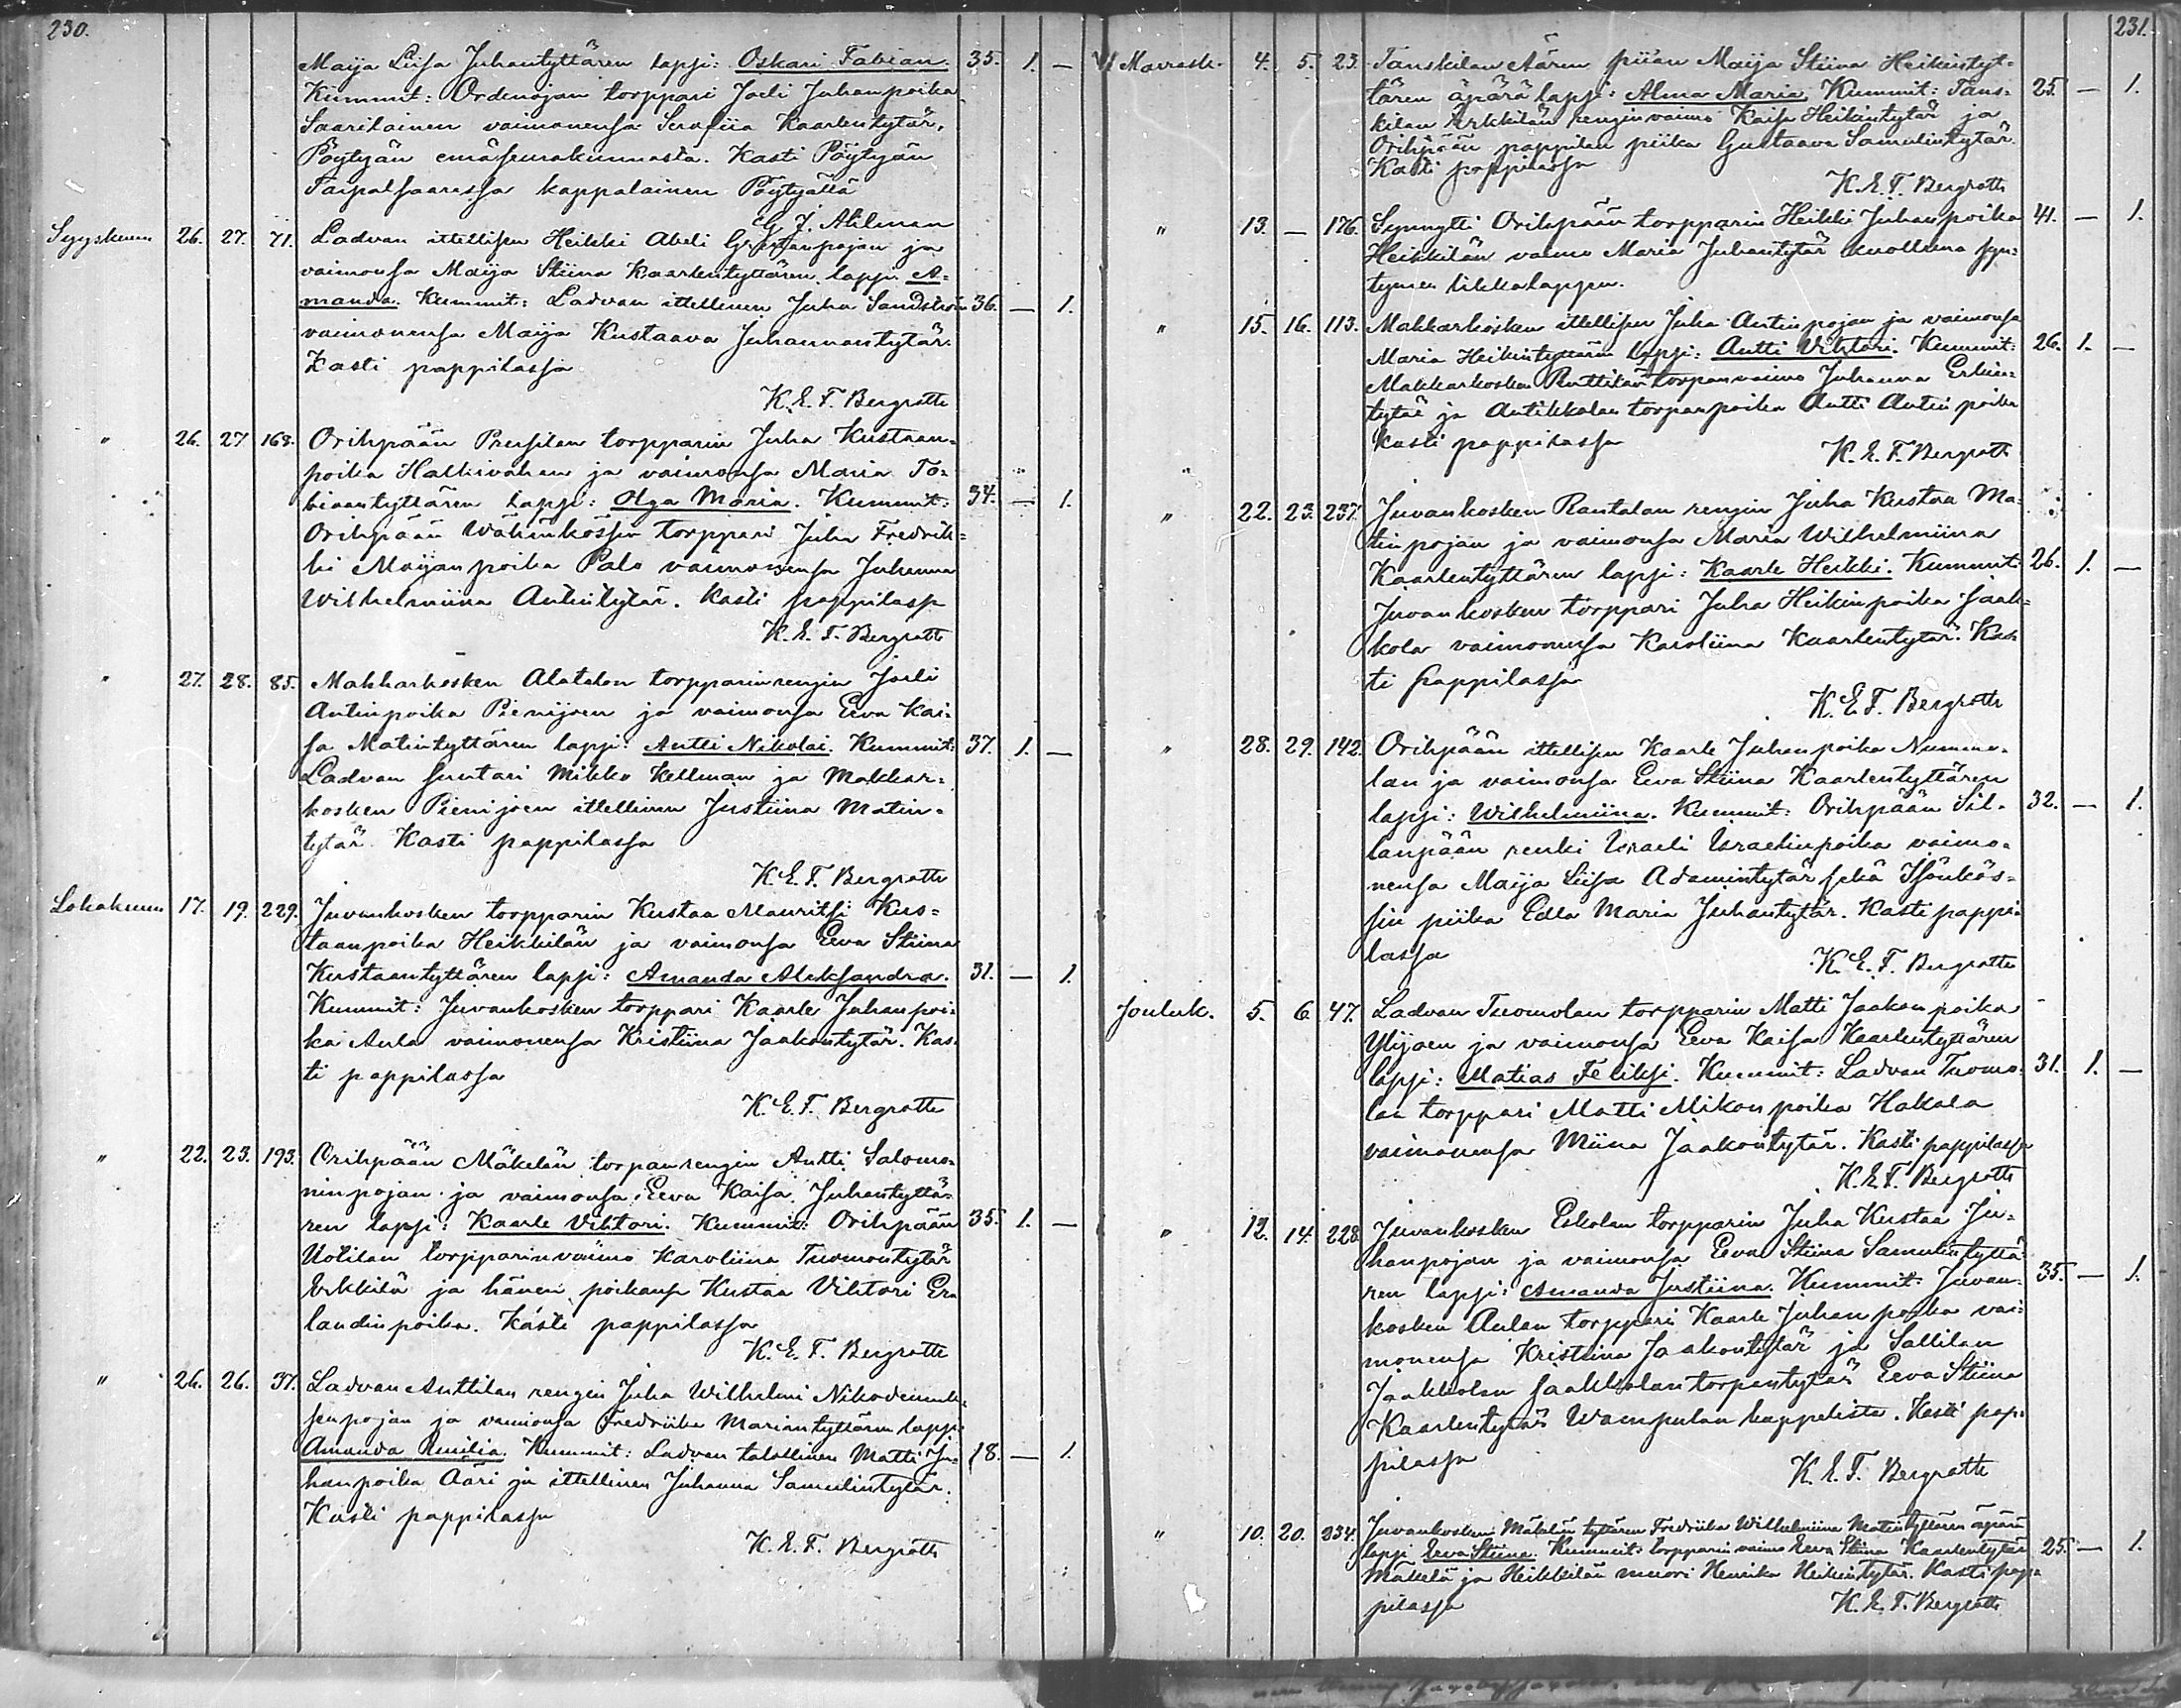 230.
Maija Liisa Juhantyttären lapsi: Oskari Fabian. 35. 1. —
Kummit: Ordenojan torppari Joeli Juhanpoika
Saarilainen vaimonensa Serafiia Kaarlentytär,
Pöytyän emäseurakunnasta. Kasti Pöytyän
kappalainen Pöytyällä
G. J. Ahlman
Syyskuun 26. 27. 71. Ladvan ittellisen Heikki Abeli ja
vaimonsa Maija Stiina Kaarlentyttären lapsi A-
manda. Kummit: Ladvan ittellinen Juha Sandström 36. — 1.
vaimonensa Maija Kustaava Juhannantytär.
Kasti pappilassa
K. E. F. Bergroth
" 26. 27 163. Orihpään torpparin Juha Kustaan-
poika Halkivahan ja vaimonsa Maria To-
biaantyttären lapsi: Olga Maria. Kummit: 34. — 1.
Orihpään torppari Juha Fredrik-
ki Maijanpoika Palo vaimonensa Johanna
Wilhelmiina Antintytär. Kasti pappilassa
K. E. F. Bergroth
" 27. 28. 85. Makkarkosken Alatalon torpparinrengin Joeli
Antinpoika Pienijoen ja vaimonsa Eeva Kai-
sa Matintyttären lapsi: Antti Nikolai. Kummit: 37. 1. —
Ladvan suutari Mikko Kellman ja Makkar-
kosken Pienijoen ittellinen Justiina Matin-
tytär. Kasti pappilassa
K. E. F. Bergroth
Lokakuun 17. 19. 229. Juvankosken torpparin Kustaa Mauritsi Kus-
taanpoika Heikkilän ja vaimonsa Eeva Stiina
Kustaantyttären lapsi: Amanda Aleksandra. 31. — 1.
Kummit: Juvankosken torppari Kaarle Juhanpoi-
ka Aula vaimonensa Kristiina Jaakontytär. Kas-
ti pappilassa
K. E. F. Bergroth
" 22. 23. 193. Orihpään Mäkelän torpanrengin Antti Salomo-
ninpojan ja vaimonsa Eeva Kaisa Juhantyttä-
ren lapsi: Kaarle Vihtori. Kummit: Orihpään 35. 1. —
Uotilan torpparinvaimo Karoliina Tuomontytär
Erkkilä ja hänen poikansa Kustaa Vihtori Er-
landinpoika. Kasti pappilassa
K. E. F. Bergroth
" 26. 26. 37. Ladvan Anttilan rengin Juha Wilhelmi Nikodemuk-
senpojan ja vaimonsa Fredriika Mariantyttären lapsi
Amanda Emilia. Kummit: Ladvan talollinen Matti Ju- 18. — 1.
hanpoika Ääri ja ittellinen Johanna Samulintytär.
Kasti pappilassa
K. E. F. Bergroth
231.
Marrask. 4. 5. 23. Tanskilan Äären piian Maija Stiina Heikintyt-
tären äpärä lapsi: Alma Maria. Kummit: Tans- 25. — 1.
kilan Erkkilän renginvaimo Kaisa Heikintytär ja
Orihpään pappilan piika Gustaava Samulintytär.
Kasti pappilassa
K. E. F. Bergroth
" 13. — 176. Synnytti Orihpään torpparin Heikki Juhanpoika 41. — 1.
Heikkilän vaimo Maria Juhantytär kuolluna syn-
tyneen tikkalapsen.
" 15. 16. 113. Makkarkosken ittellisen Juha Antinpojan ja vaimonsa
Maria Heikintyttären lapsi: Antti Vihtori. Kummit: 26. 1. —
Makkarkosken Ruttilan torpanvaimo Johanna Erkin-
tytär ja Antikkalan torpanpoika Antti Antinpoika
Kasti pappilassa
K. E. F. Bergroth
" 22. 23. 237. Juvankosken Rantalan rengin Juha Kustaa Ma-
tinpojan ja vaimonsa Maria Wilhelmiina
Kaarlentyttären lapsi: Kaarle Heikki. Kummit: 26. 1. —
Juvankosken torppari Juha Heikinpoika Jaak-
kola vaimonensa Karoliina Kaarlentytär. Kas-
ti pappilassa
K. E. F. Bergroth
" 28. 29. 142. Orihpään ittellisen Kaarle Juhanpoika Nummo-
lan ja vaimonsa Eeva Stiina Kaarlentyttären
lapsi: Wilhelmiina. Kummit: Orihpään Sil- 32. — 1.
lanpään renki Israeli Israelinpoika vaimo-
nensa Maija Liisa Adamintytär sekä Isonkös-
sin piika Edla Maria Juhantytär. Kasti pappi-
lassa
K. E. F. Bergroth
Jouluk. 5. 6. 47. Ladvan Tuomolan torpparin Matti Jaakonpoika
Ylijoen ja vaimonsa Eeva Kaisa Kaarlentyttären
lapsi: Matias Feliksi. Kummit: Ladvan Tuomo- 31. 1. —
lan torppari Matti Mikonpoika Hakala
vaimonensa Miina Jaakontytär. Kasti pappilassa
K. E. F. Bergroth
" 12. 14. 228. Juvankosken Eskolan torpparin Juha Kustaa Ju-
hanpojan ja vaimonsa Eeva Stiina Samulintyttä-
ren lapsi: Amanda Justiina. Kummit: Juvan- 35. — 1.
kosken Aulan torppari Kaarle Juhanpoika vai-
monensa Kristiina Jaakontytär ja Sallilan
Jaakkolan Jaakkolan torpantytär Eeva Stiina
Kaarlentytär Wampulan kappelista. Kasti pap-
pilassa
K. E. F. Bergroth
" 10. 20. 234. Juvankosken Mäkelän tyttären Fredriika Wilhelmiina Matintyttären äpärä
lapsi Eeva Stiina. Kummit: torpparin vaimo Eeva Stiina Kaarlentytär 25. — 1.
Mäkelä ja Heikkilän muori Henrika Heikintytär. Kasti pap-
pilassa
K. E. F. Bergroth